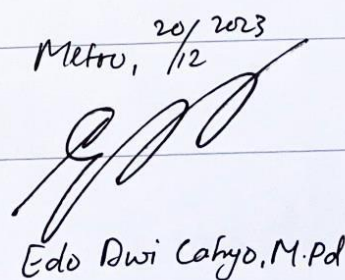 Metro, 20/12 2023
Edo Dwi Cahyo, M.Pd